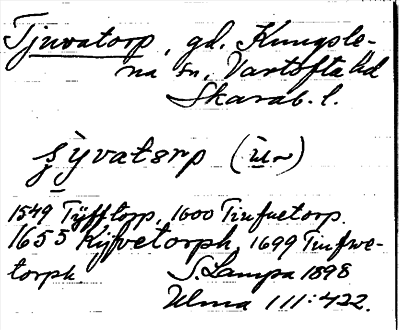 Tjuvatorp, gd. Kungsle-
na sn, Vartofta hd
Skarab. l.
ʂ̱ỳvatɵrp (ù~)
1549 Tÿfftorp, 1600 Tiufuetorp.
1655 Kyfvetorph, 1699 Tiufwe-
torph. S. Lampa 1898
Ulma 111:422.